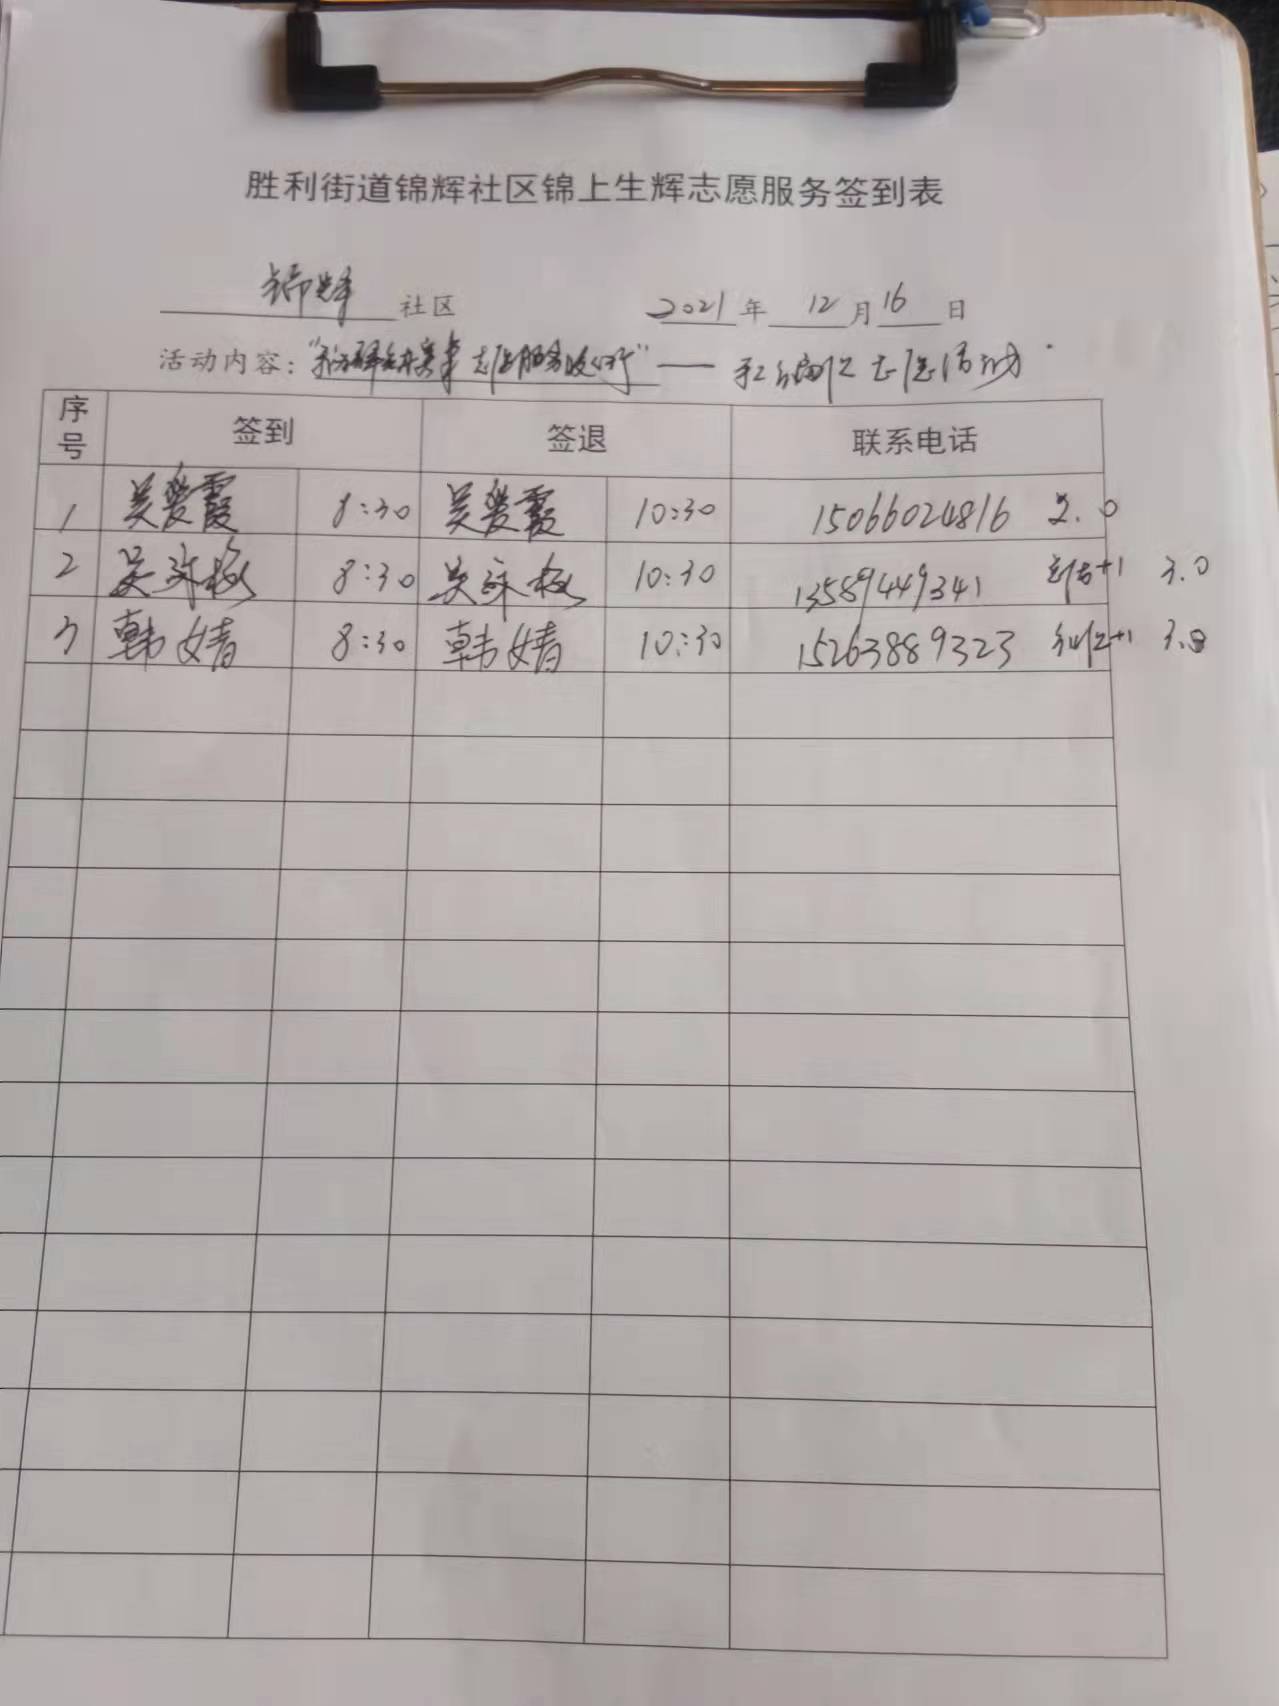 胜利街道锦辉社区锦上生辉志愿服务签到表
锦辉 社区 2021 年 12 月 16 日
活动内容: 志愿服务 " —— 志愿活动
序号 签到 签退 联系电话
1 吴爱霞 8:30 吴爱霞 10:30 15066024816 2.0
2 吴 8:30 吴 10:30 13589449341 +1 3.0
3 韩婧 8:30 韩婧 10:30 15263889323 +1 3.0